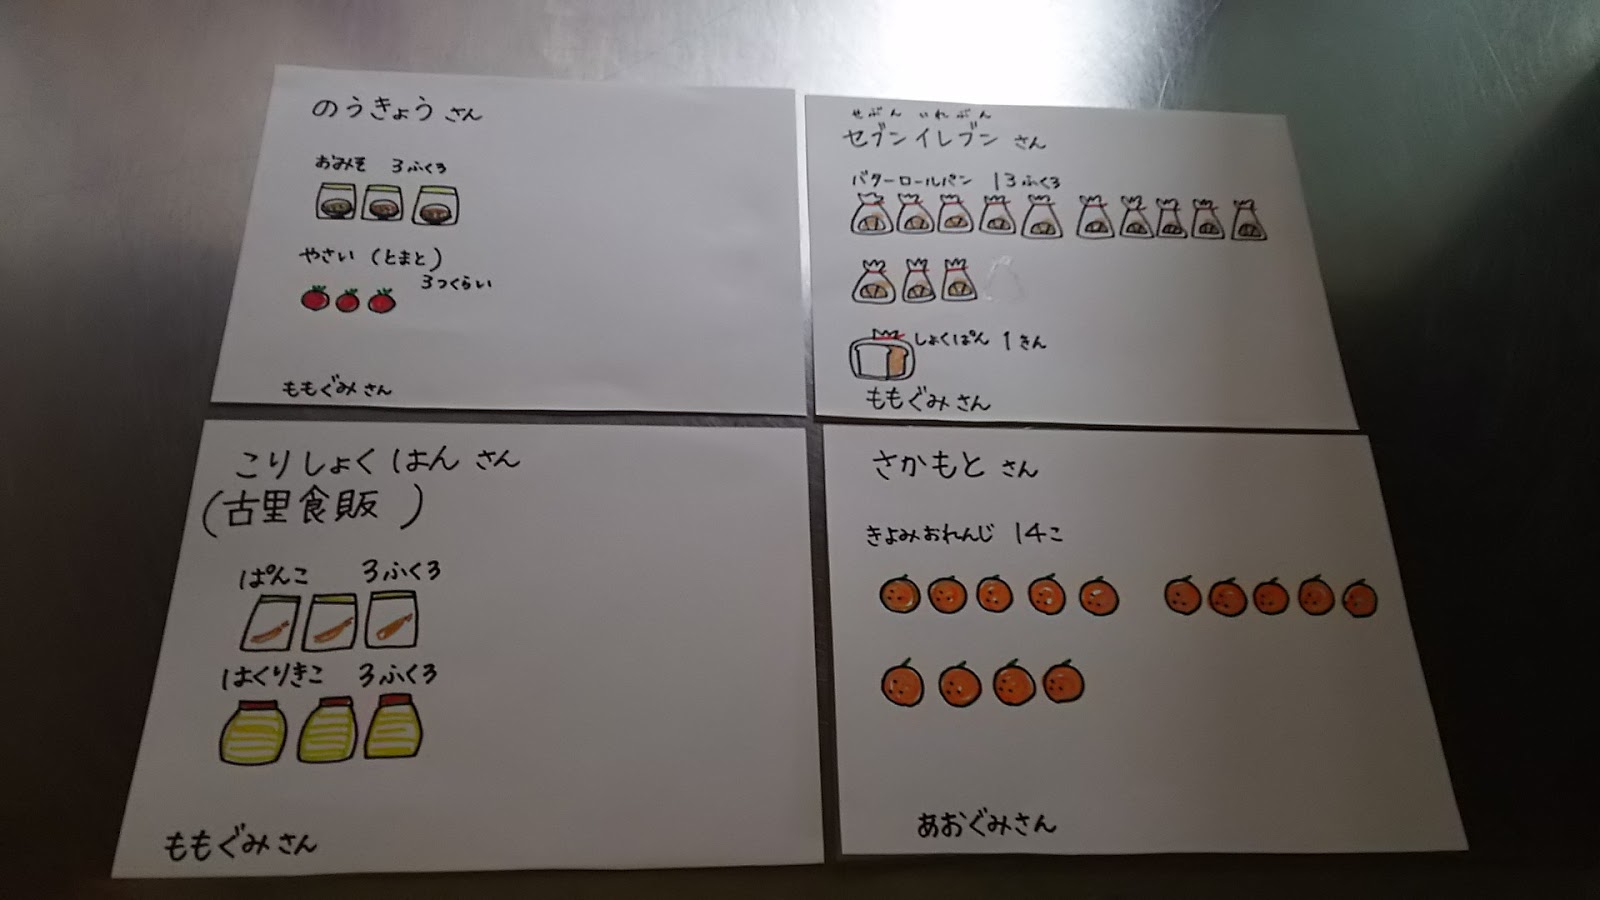 のうきょうさん
おみそ 3ふくろ
やさい (とまと)
3つくらい
ももぐみさん
せぶん いれぶん
セブンイレブン さん
バターロールパン 13ふくろ
しょくぱん 1きん
ももぐみさん
こりしょくはんさん
(古里食販)
ぱんこ 3ふくろ
はくりきこ 3ふくろ
ももぐみさん
さかもとさん
きよみおれんじ 14こ
あおぐみさん